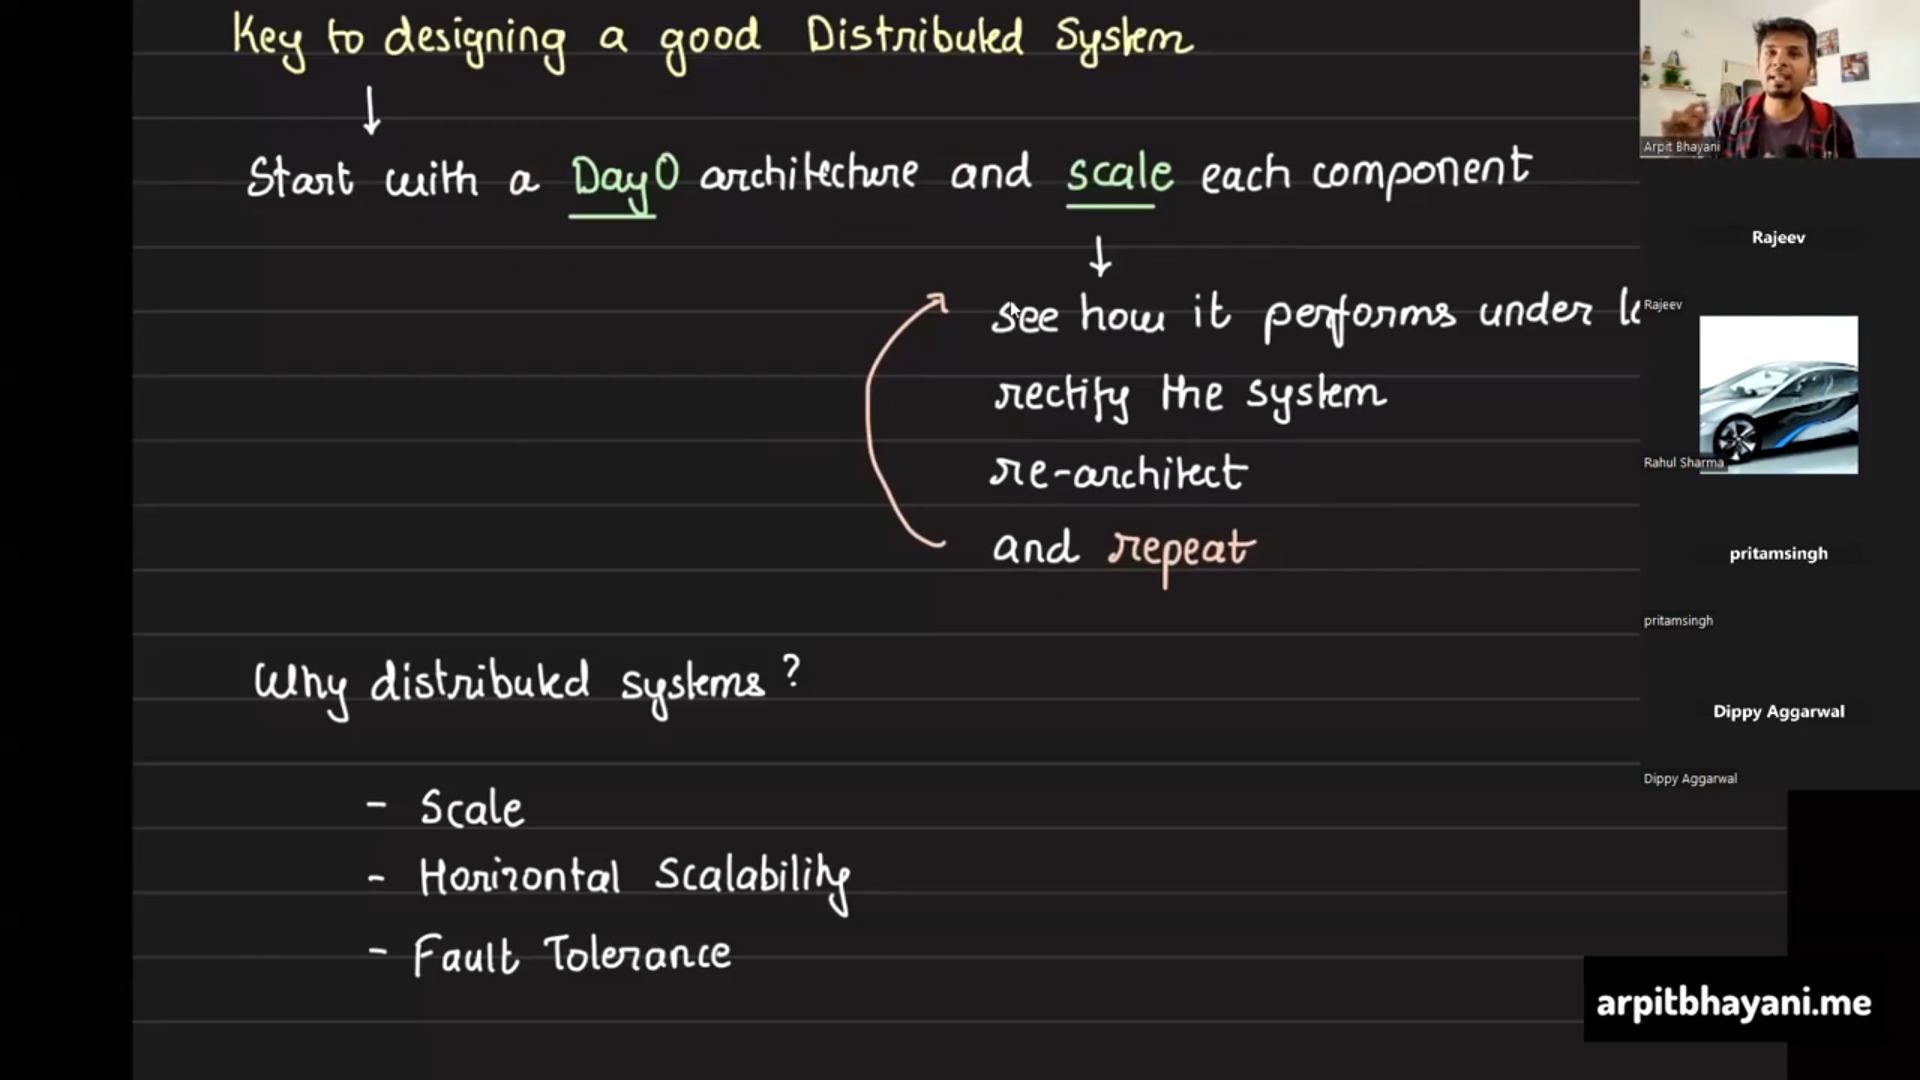 Key to designing a good Distributed System
Start with a Day 0 architecture and scale each component
see how it performs under
rectify the system
re-architect
and repeat
Why distributed systems?
- Scale
- Horizontal Scalability
- Fault Tolerance
Arpit Bhayani
Rajeev
Rajeev
Rahul Sharma
pritamsingh
pritamsingh
Dippy Aggarwal
Dippy Aggarwal
arpitbhayani.me